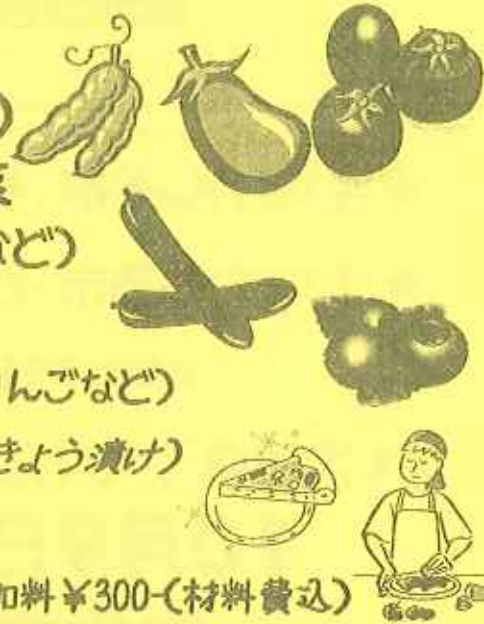 )
など)
んごなど)
きょう漬け)
加料¥300-(材料費込)